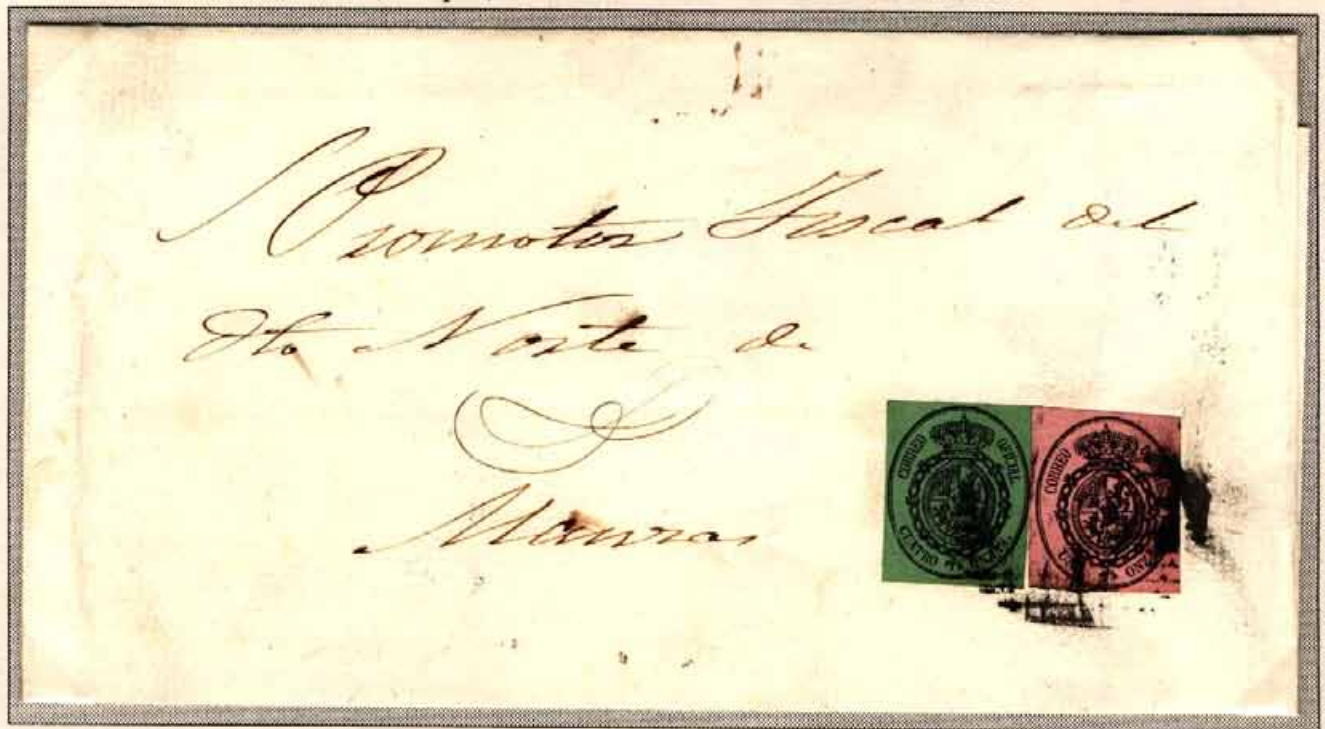 S Promotor Fiscal del
dto Norte de
CORREO OFICIAL
CUATRO
CORREO